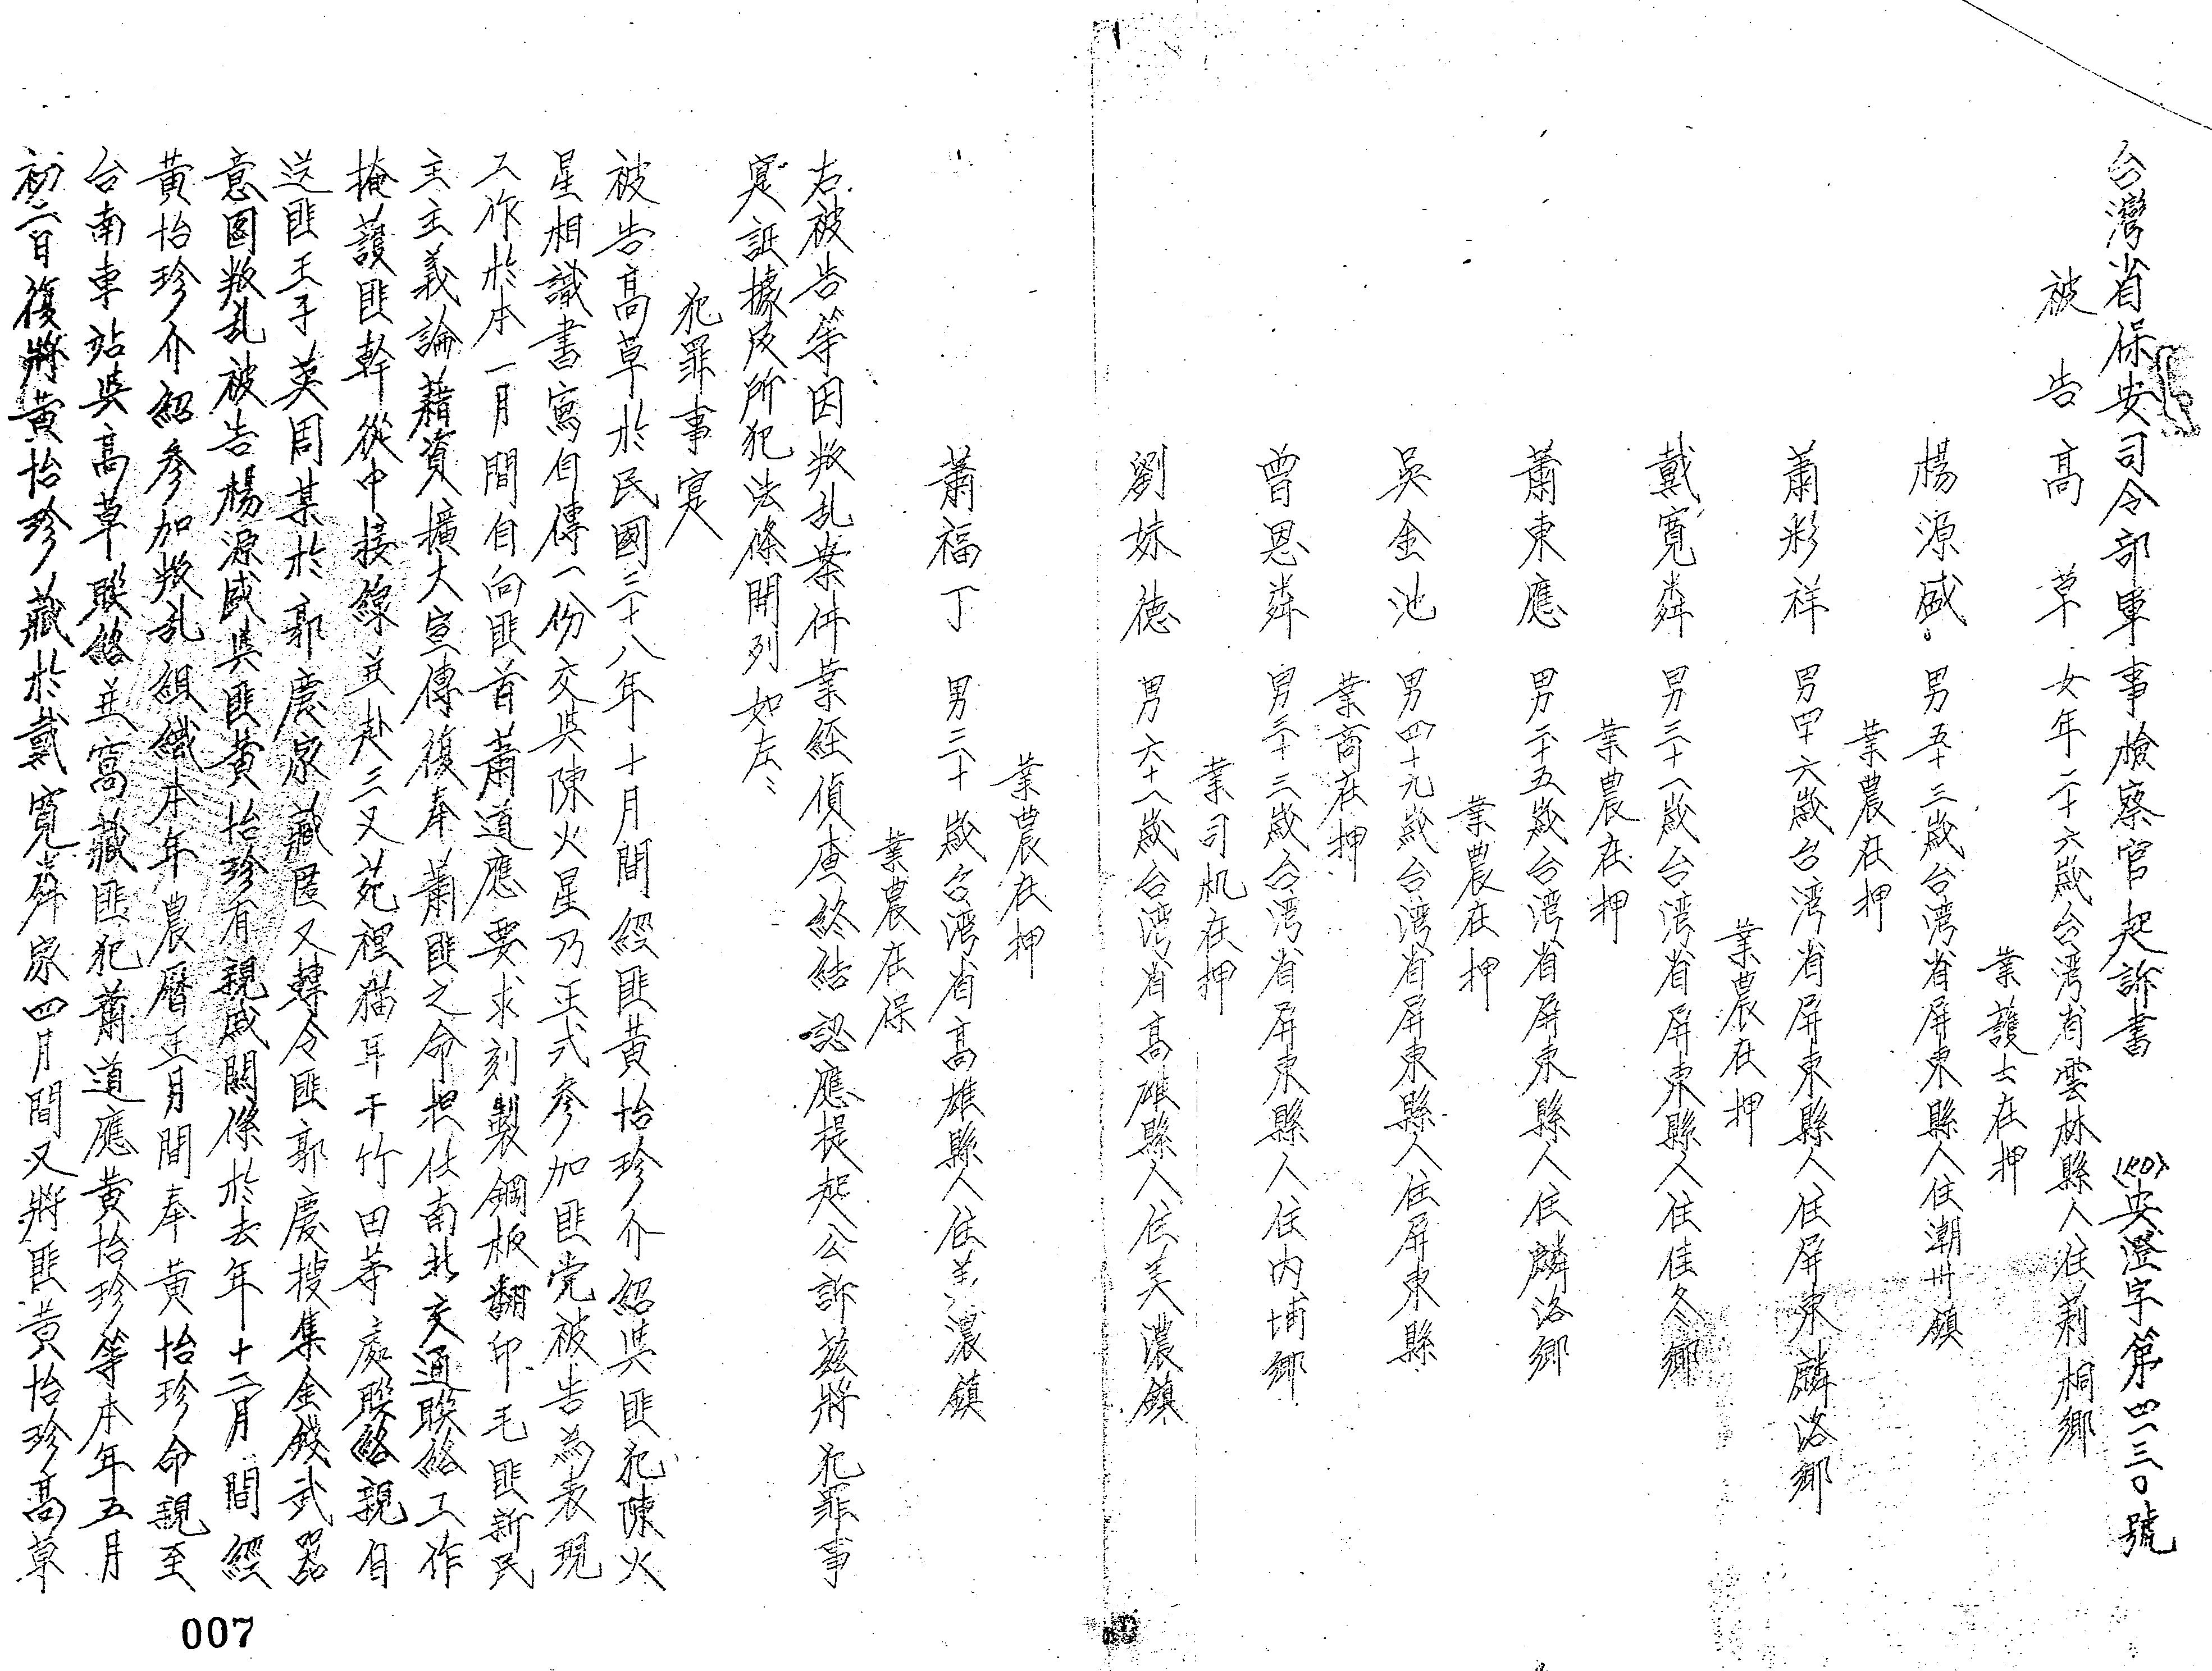 台灣省保安司令部軍事檢察官起訴書 (40)安澄字第四一三〇號
被告 高草 女年二十六歲台湾省雲林縣人住莿桐鄉
業護士在押
楊源盛 男五十三歲台湾省屏東縣人住潮卅鎮
業農在押
蕭彩祥 男四十六歲台湾省屏東縣人住屏東麟洛鄉
業農在押
戴寬粦 男三十一歲台湾省屏東縣人住佳冬鄉
業農在押
蕭東應 男二十五歲台湾省屏東縣人住麟洛鄉
業農在押
吳金池 男四十九歲台湾省屏東縣人住屏東縣
業商在押
曾恩粦 男三十三歲台湾省屏東縣人住內埔鄉
業司机在押
劉妹德 男六十一歲台湾省高雄縣人住美濃鎮
業農在押
蕭福丁 男三十歲台湾省高雄縣人住美濃鎮
業農在保
右被告等因叛乱案件業経偵查終結認應提起公訴茲將犯罪事
寔証據及所犯法條開列如左:
犯罪事寔
被告高草於民國三十八年十月間經匪黃怡珍介紹與匪犯陳火
星相識書寫自傳一份交與陳火星乃正式參加匪党被告為表現
工作於本一月間自向匪首蕭道應要求刻製鋼板翻印毛匪新民
主主義論藉資擴大宣傳復奉蕭匪之命担任南北交通聯絡工作
掩護匪幹從中接線並赴三叉苑裡猫耳干竹田等處聯絡親自
送匪王子英周某於郭慶家藏匿又轉令匪郭慶搜集金錢武器
意图叛乱被告楊源盛與匪黃怡珍有親戚關係於去年十二月間經
黃怡珍介紹參加叛乱組織本年農曆正月間奉黃怡珍命親至
台南車站與高草聯絡並窩藏匪犯蕭道應黃怡珍等本年五月
初二日復將黃怡珍藏於戴寬粦家四月間又將匪黃怡珍高草
007